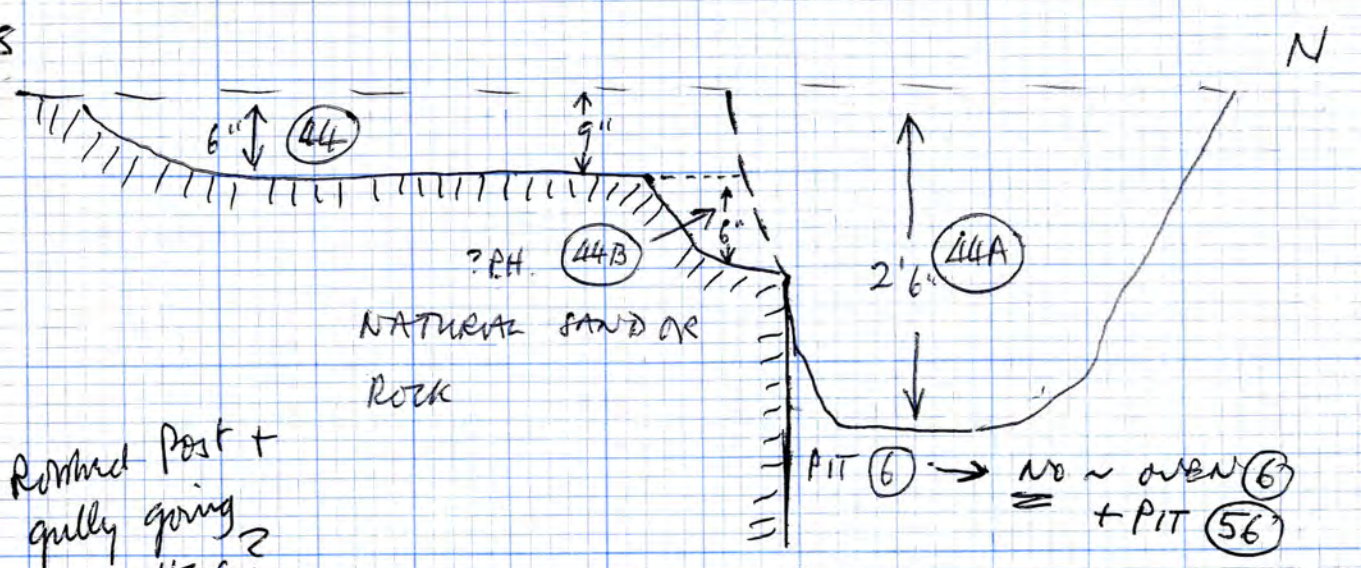 S
N
6" 44
9"
6"
?P.H. 44B
2'6" 44A
NATURAL SAND OR
ROCK
Post +
gully going
PIT 6 → NO ~ OVEN 6
+ PIT 56